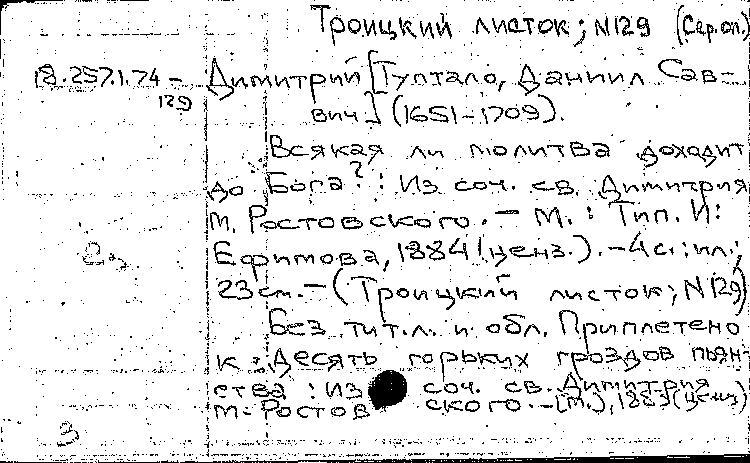 Троицкий листок; N129 (Сер.оп.)
18.257.1.74- Димитрий [Туптало, Даниил Сав-
129 вич] (1651-1709).
Всякая ли молитва доходит
до Бога?: Из соч. св. Димитрия
м. Ростовского. - М.: Тип. И:
Ефимова, 1884 (ценз.). - 4с.: ил.;
23см. - (Троицкий листок; N129)
Без тит.л. и обл. Приплетено
к: Десять горьких гроздов пьян-
ства: Из соч. св. Димитрия
м. Ростовского. - [М.], 1883 (ценз)
3